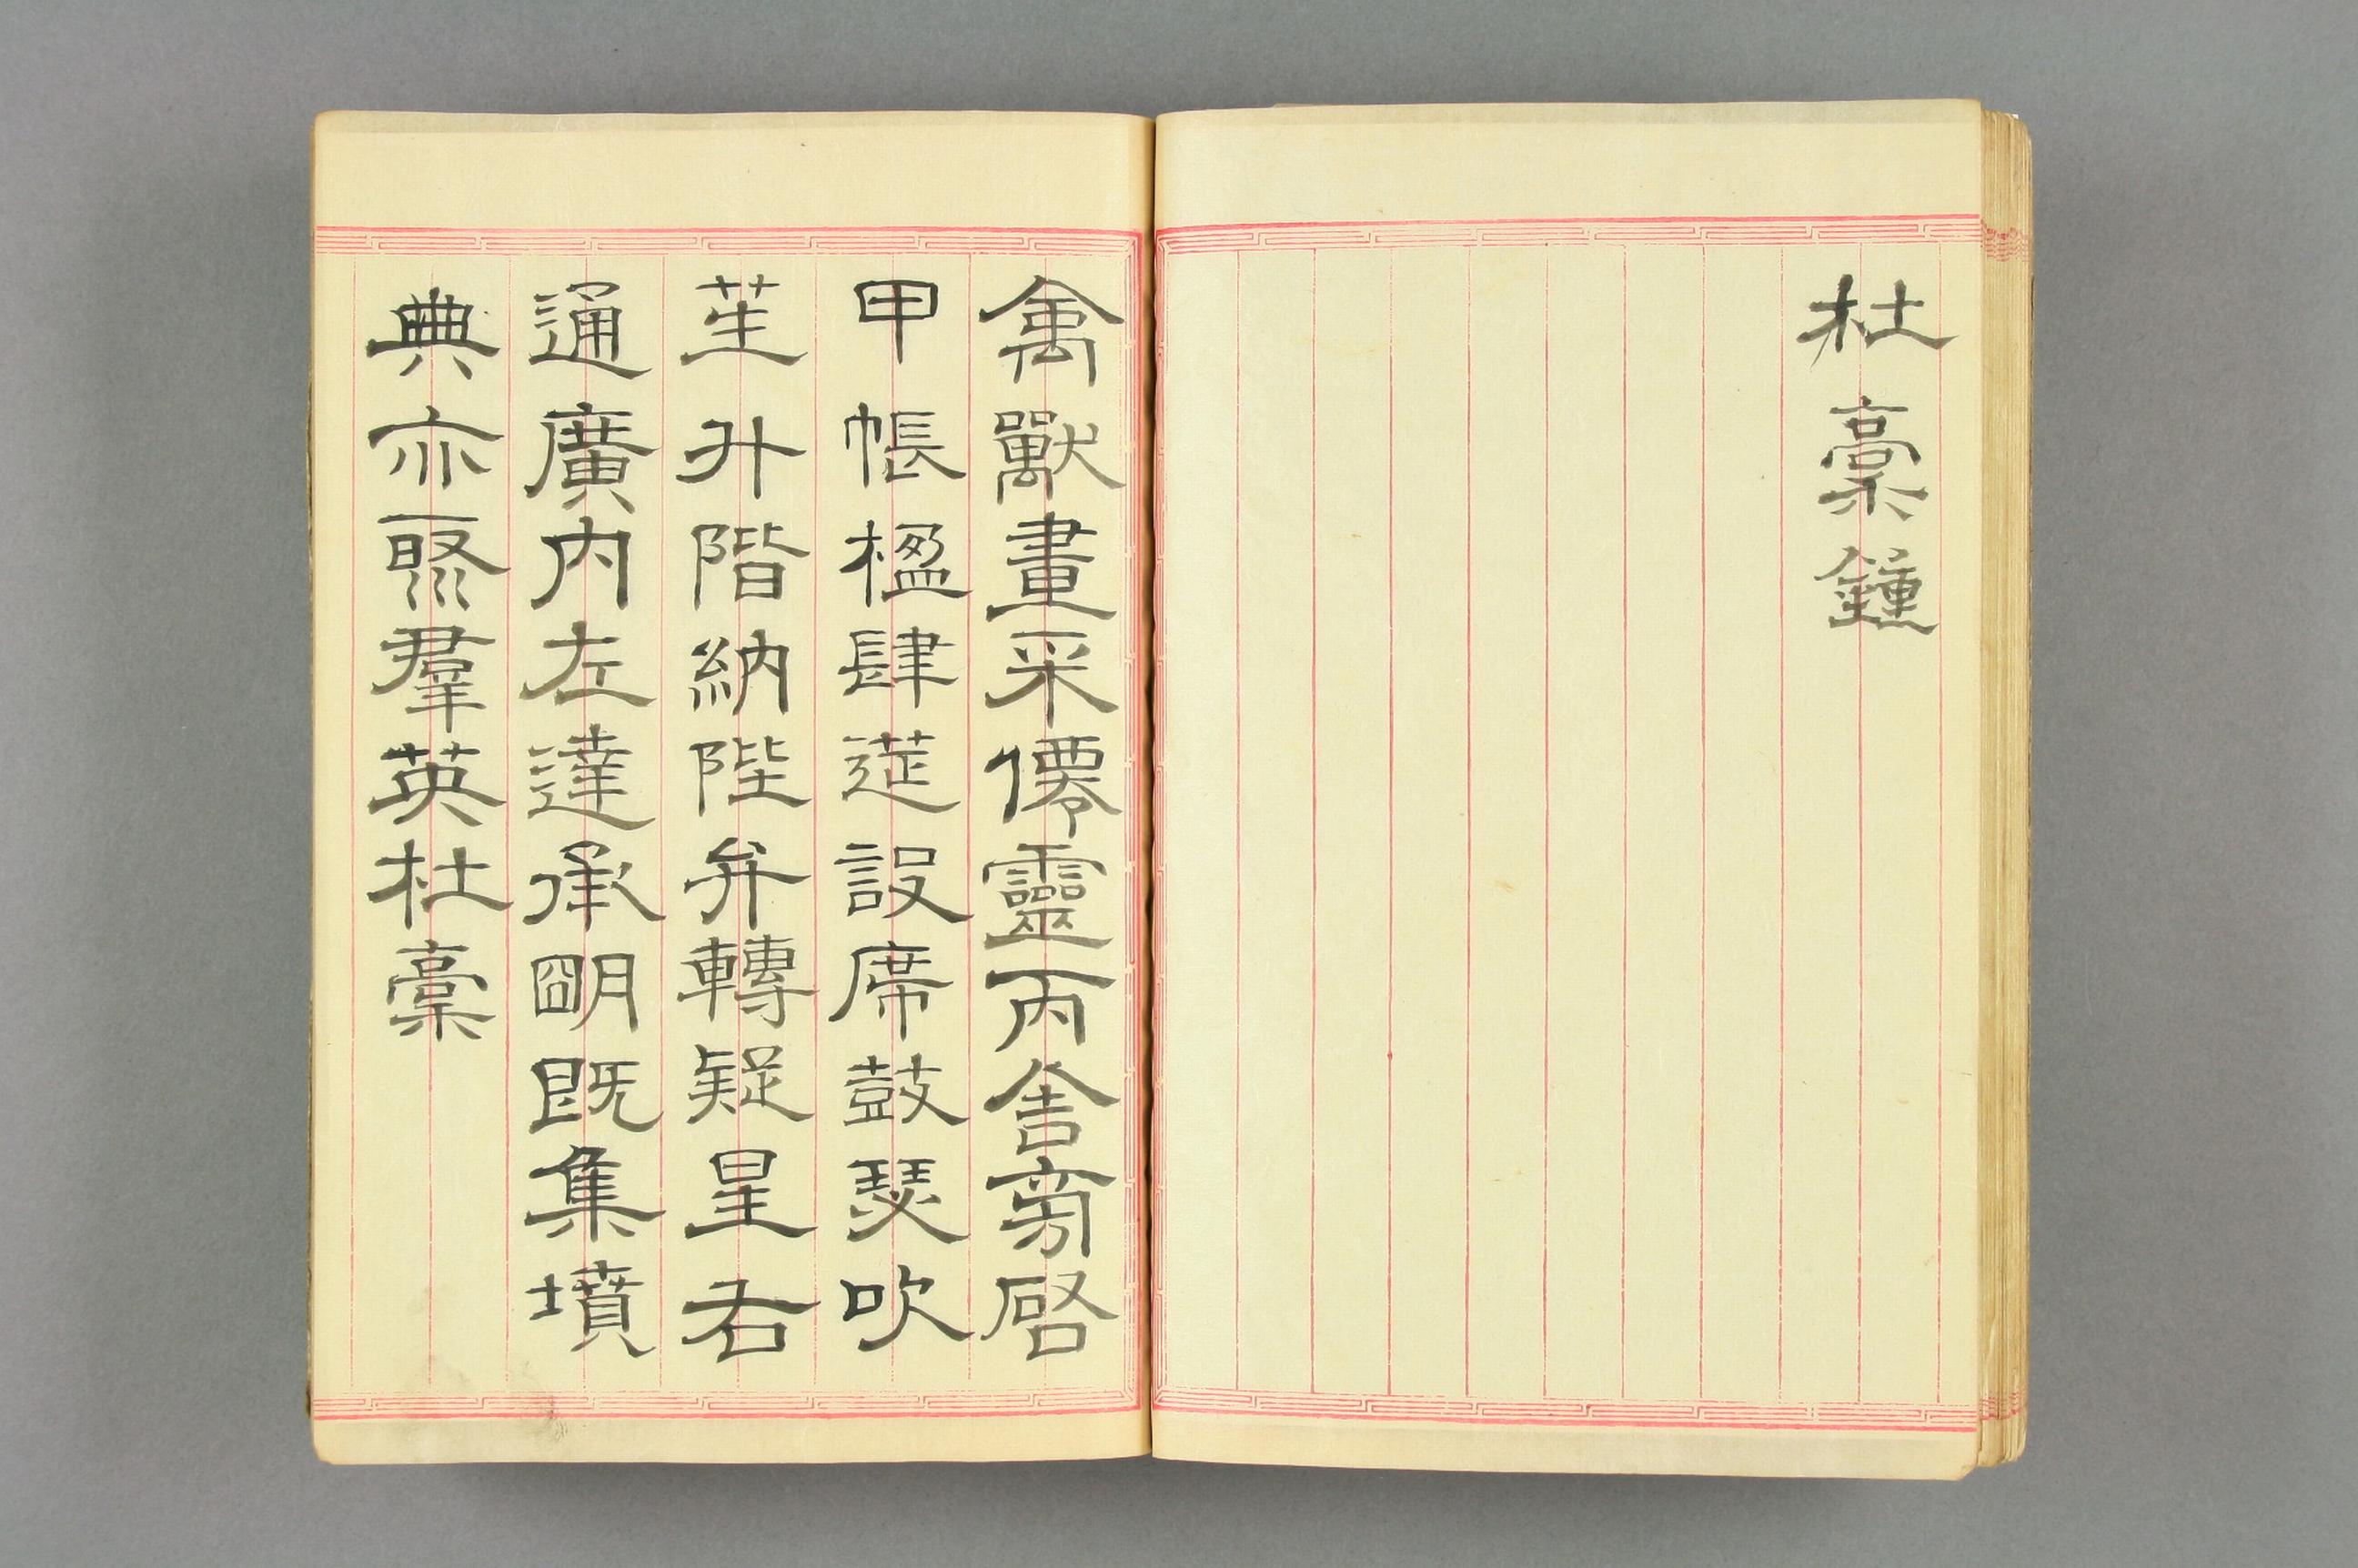 杜稾鍾
禽獸畫采僊靈丙舍旁啓
甲帳楹肆筵設席鼓瑟吹
笙升階納陛弁轉疑星右
通廣内左達承朙既集墳
典亦聚羣英杜稾